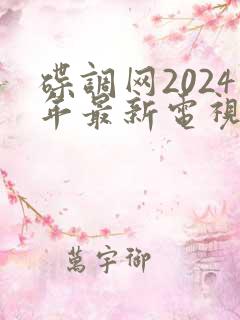 碟調网2024
年最新電視
萬字御